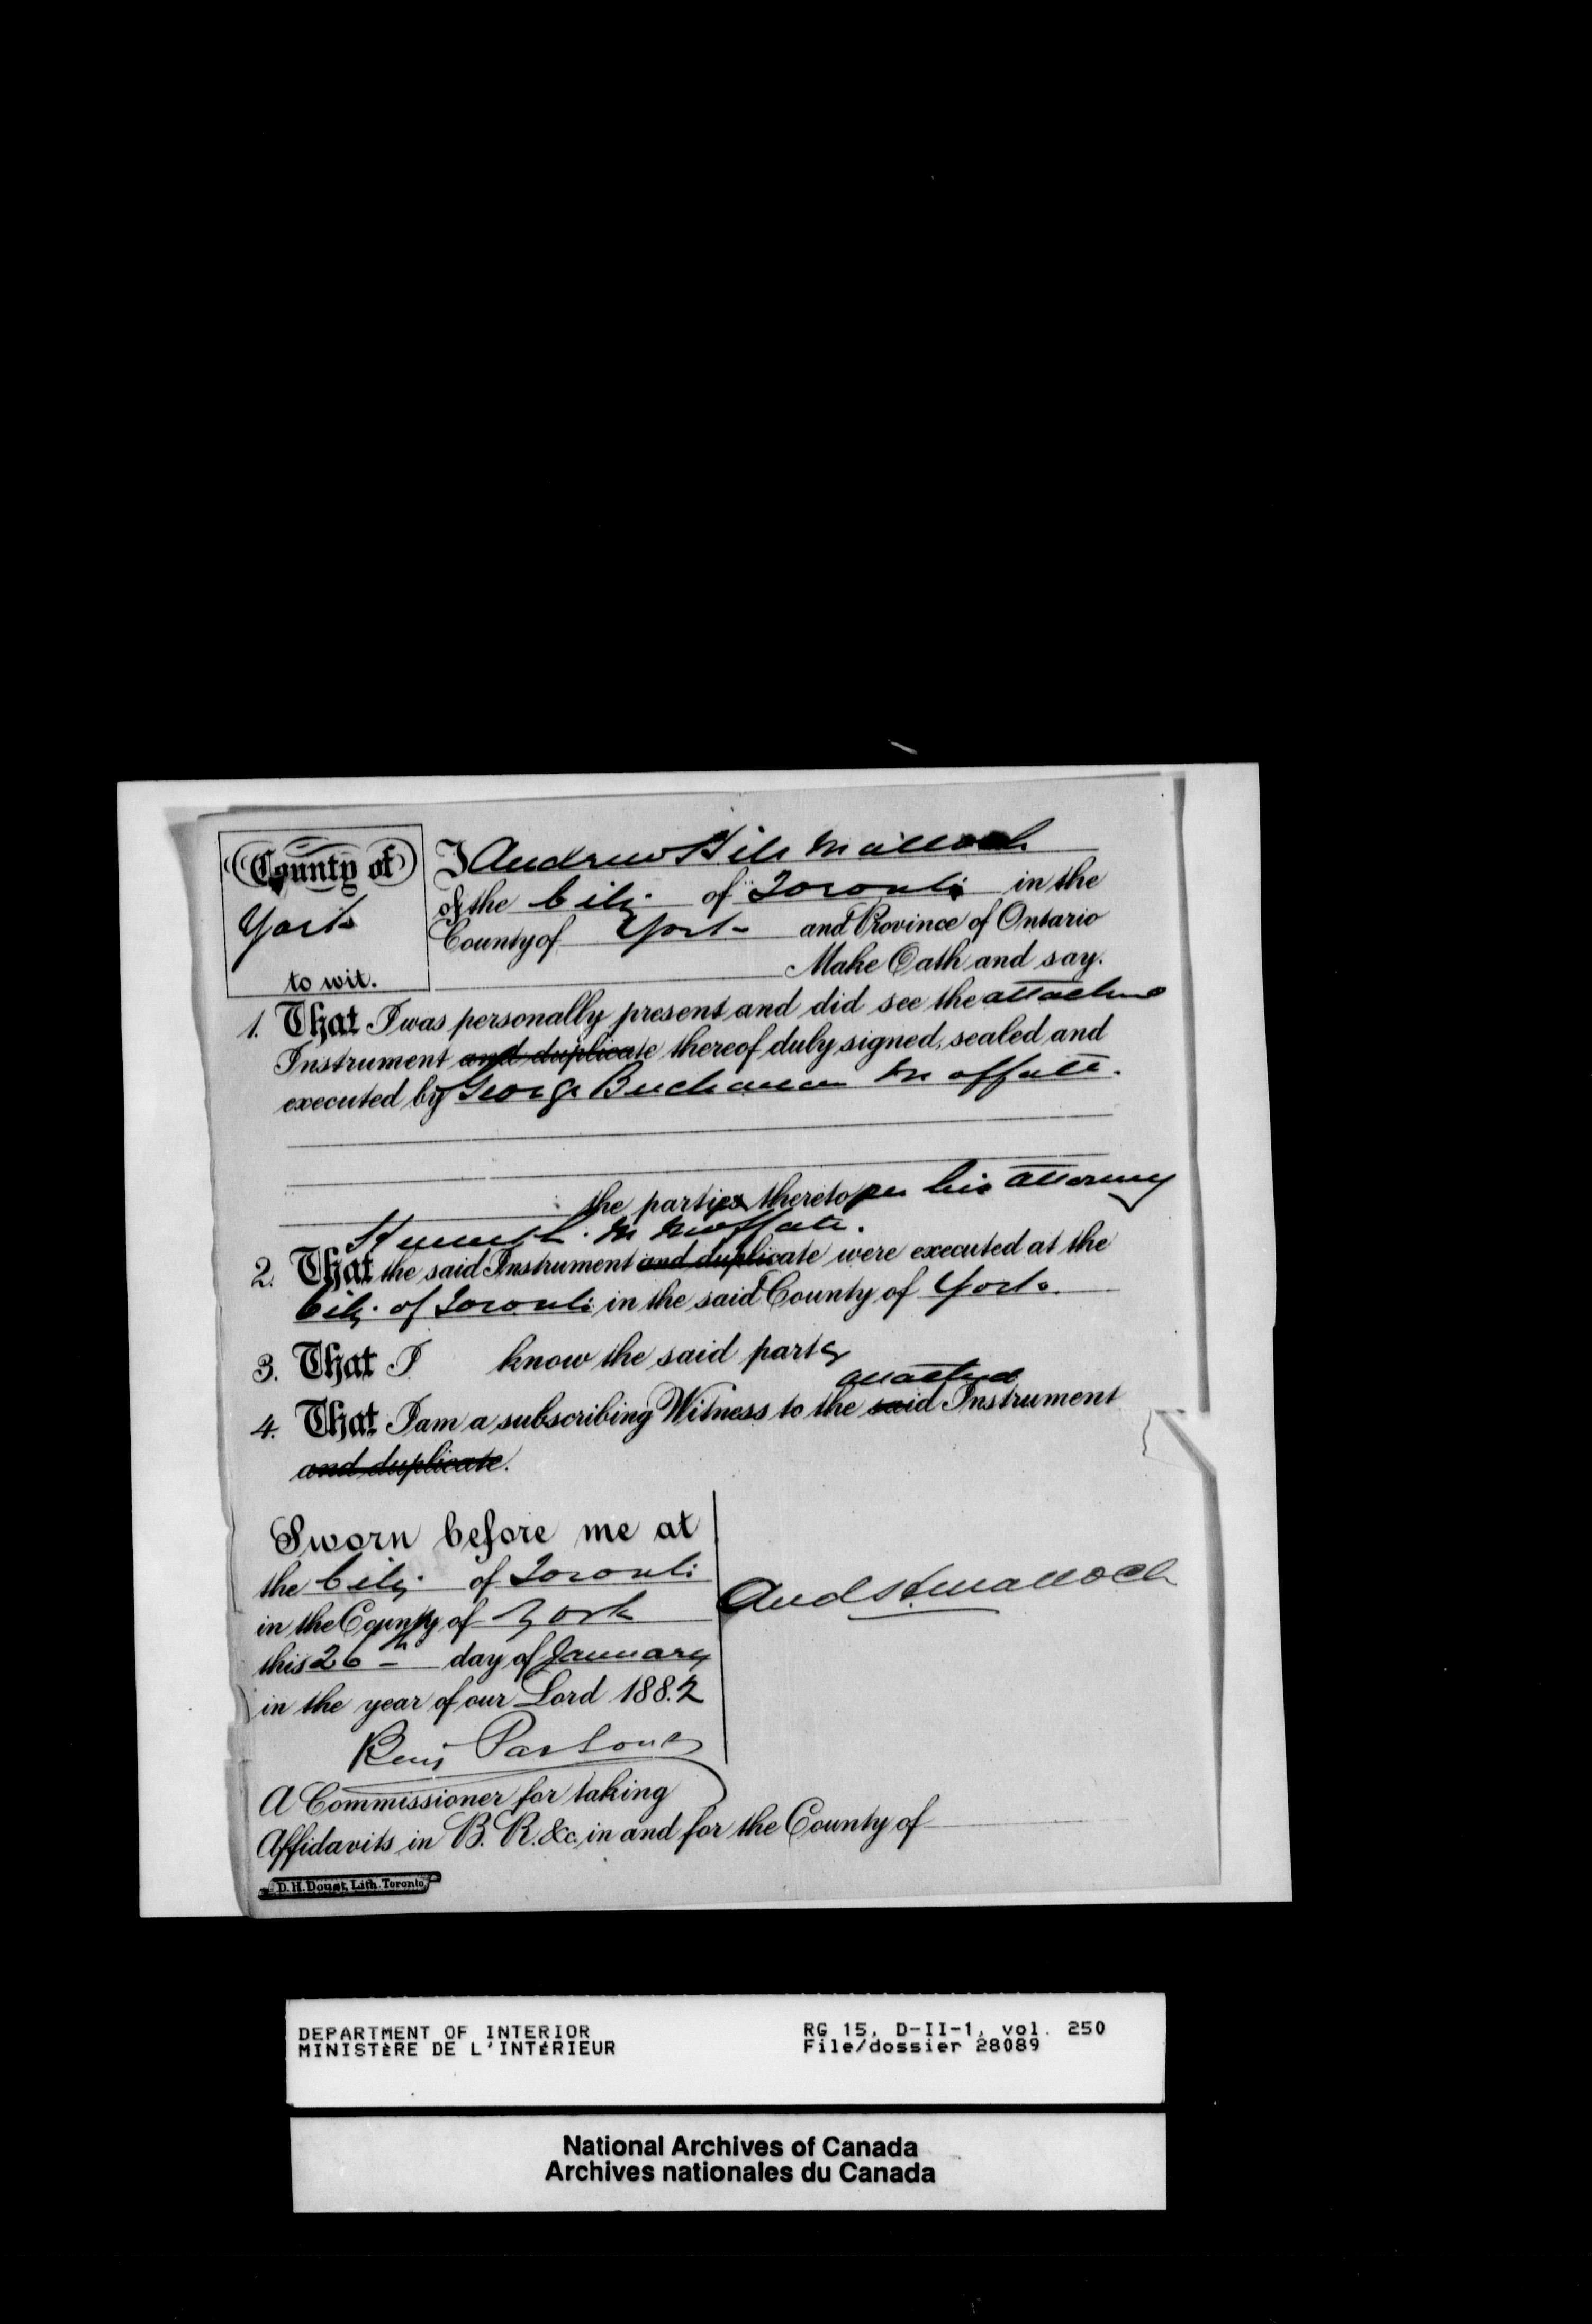 County of
York
to wit.
I Andrew Hill Malloch
of the City of Toronto in the
County of York and Province of Ontario
Make Oath and say.
1. That I was personally present and did see the attached
Instrument and duplicate thereof duly signed, sealed and
executed by George Buchanan Moffatt.
the parties thereto per his attorney
M Moffatt.
2. That the said Instrument and duplicate were executed at the
City of Toronto in the said County of York.
3. That I know the said party
attached
4. That I am a subscribing Witness to the said Instrument
and duplicate.
Sworn before me at
the City of Toronto
in the County of York
this 26th day of January
in the year of our Lord 1882
And H Malloch
Benj Parsons
A Commissioner for taking
Affidavits in B. R. &c. in and for the County of
D. H. Lith. Toronto
DEPARTMENT OF INTERIOR
MINISTÈRE DE L'INTÉRIEUR
RG 15, D-II-1, vol. 250
File/dossier 28089
National Archives of Canada
Archives nationales du Canada